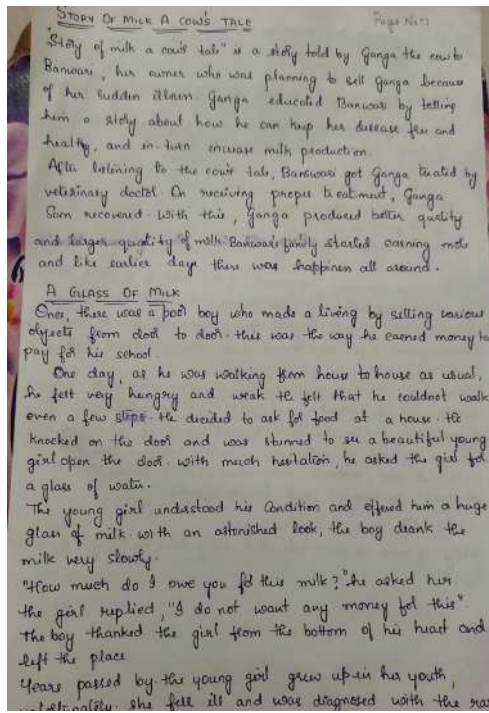 STORY OF MILK A COW'S TALE
Page No:1
"Story of milk a cow's tale" is a story told by Ganga the cow to
Banwari, her owner who was planning to sell Ganga because
of her sudden illness. Ganga educated Banwari by telling
him a story about how he can keep her disease free and
healthy, and in-turn increase milk production.
After listening to the cow's tale, Banswari got Ganga treated by
veterinary doctor. On receiving proper treatment, Ganga
Soon recovered. With this, Ganga produced better quality
and larger quantity of milk. Banwari family started earning more
and like earlier days there was happiness all around.
A GLASS OF MILK
Once, there was a poor boy who made a living by selling various
objects from door to door. this was the way he earned money to
pay for his school.
One day, as he was walking from house to house as usual,
he felt very hungry and weak. He felt that he couldnot walk
even a few steps. He decided to ask for food at a house. He
knocked on the door and was stunned to see a beautiful young
girl open the door. with much hesitation, he asked the girl for
a glass of water.
The young girl understood his Condition and offered him a huge
glass of milk. with an astonished look, the boy drank the
milk very slowly.
"How much do I owe you for this milk?" he asked her.
the girl replied, "I do not want any money for this".
The boy thanked the girl from the bottom of his heart and
left the place
Years passed by. the young girl grew up. in her youth,
unfortunately, she fell ill and was diagnosed with the